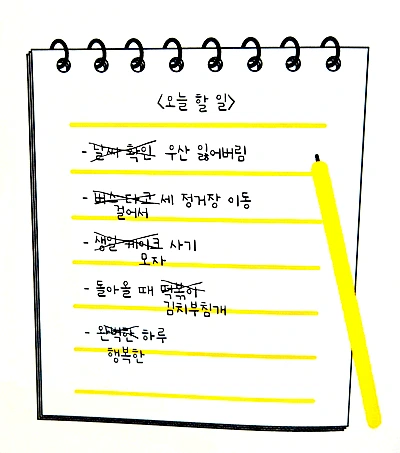 <오늘 할 일>
- 날씨 확인 우산 잃어버림
- 버스 타고 세 정거장 이동
걸어서
- 생일 케이크 사기
모자
- 돌아올 때 떡볶이
김치부침개
- 완벽한 하루
행복한